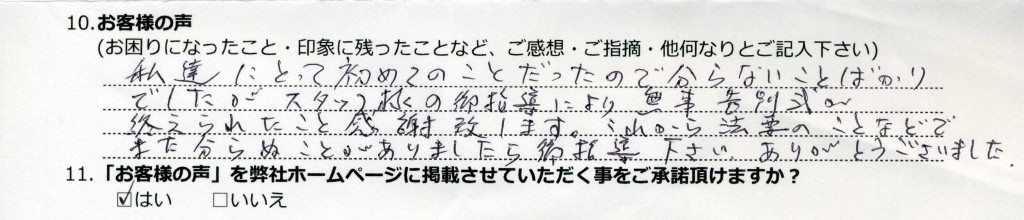 10.お客様の声
(お困りになったこと・印象に残ったことなど、ご感想・ご指摘・他何なりとご記入下さい)
私達にとって初めてのことだったので分らないことばかり
でしたが スタッフ様の御指導により 無事告別式が
終えられたこと感謝致します。これから法要のことなどで
また分らぬことがありましたら御指導下さい。ありがとうございました
11.「お客様の声」を弊社ホームページに掲載させていただく事をご承諾頂けますか？
☑はい　□いいえ